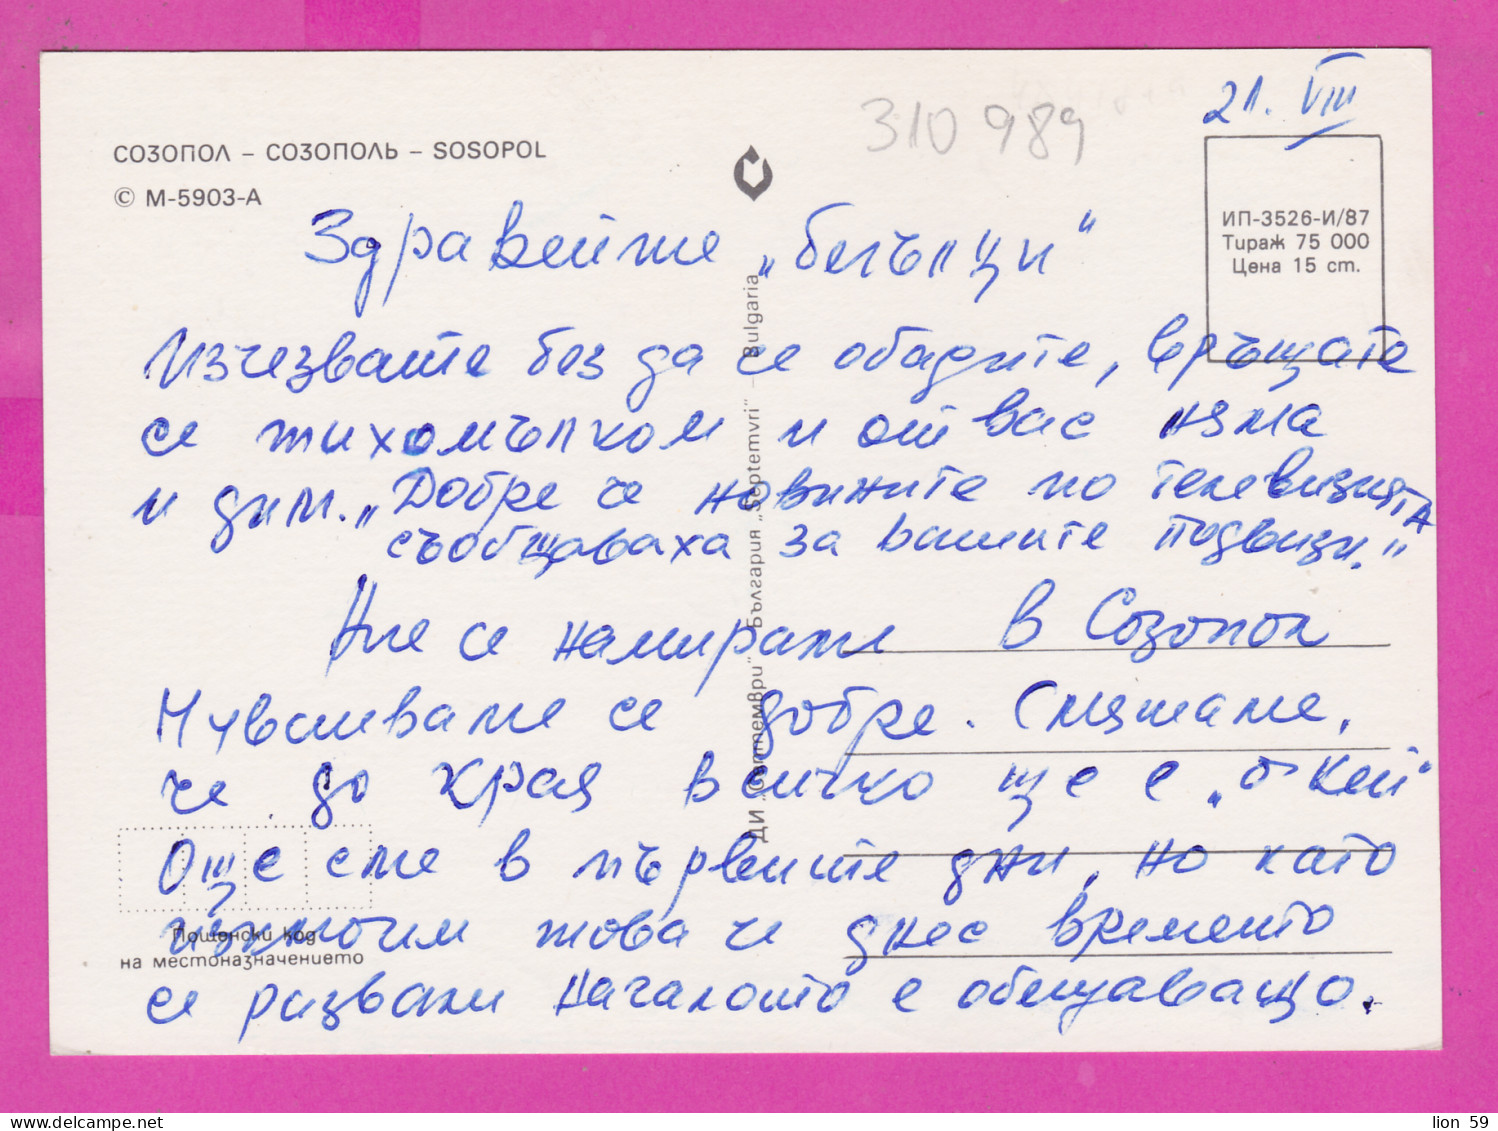 21. VIII
310 989
СОЗОПОЛ – СОЗОПОЛЬ – SOSOPOL
© М-5903-А
ИП-3526-И/87
Тираж 75 000
Цена 15 ст.
Здравейте „бегълци"
Изчезвате без да се обадите, връщате
се тихомълком и от вас няма
и дим. „Добре че новините по телевизията
съобщаваха за вашите подвизи."
Ние се намираме в Созопол
Чувстваме се добре. Смятаме,
че до края всичко ще е „о кей"
Още сме в първите дни, но като
изключим това че днес времето
се развали началото е обещаващо.
Пощенски код
на местоназначението
ДИ „Септември" България „Septemvri" – Bulgaria
lion 59